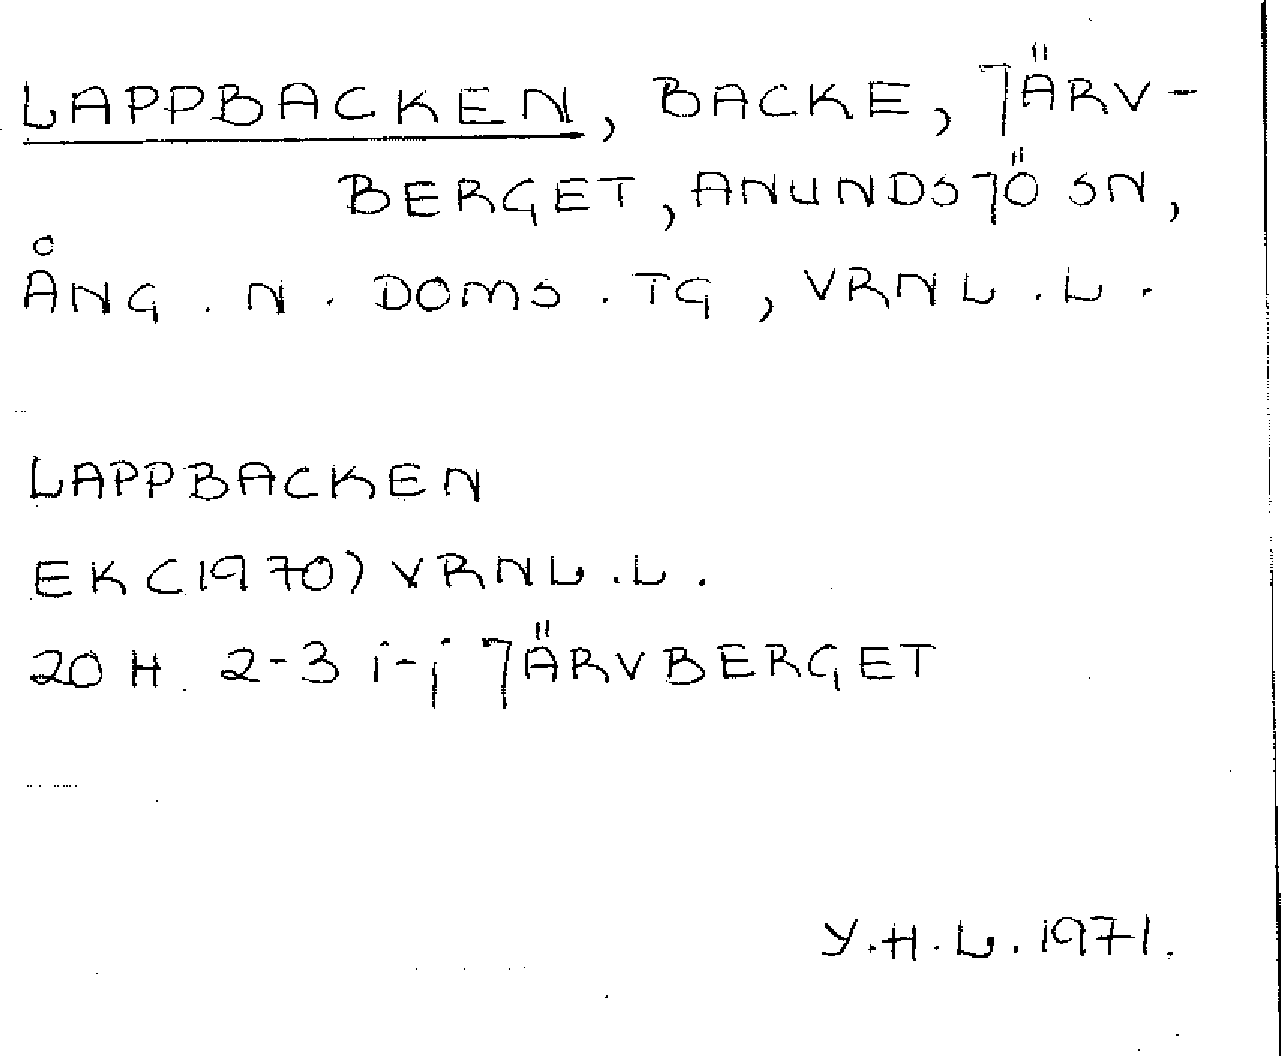 LAPPBACKEN, BACKE, JÄRV-
BERGET, ANUNDSJÖ SN,
ÅNG. N. DOMS. TG, VRNL. L.
LAPPBACKEN
EK (1970) VRNL. L.
20 H. 2-3 i-j JÄRVBERGET
Y.H.L. 1971.